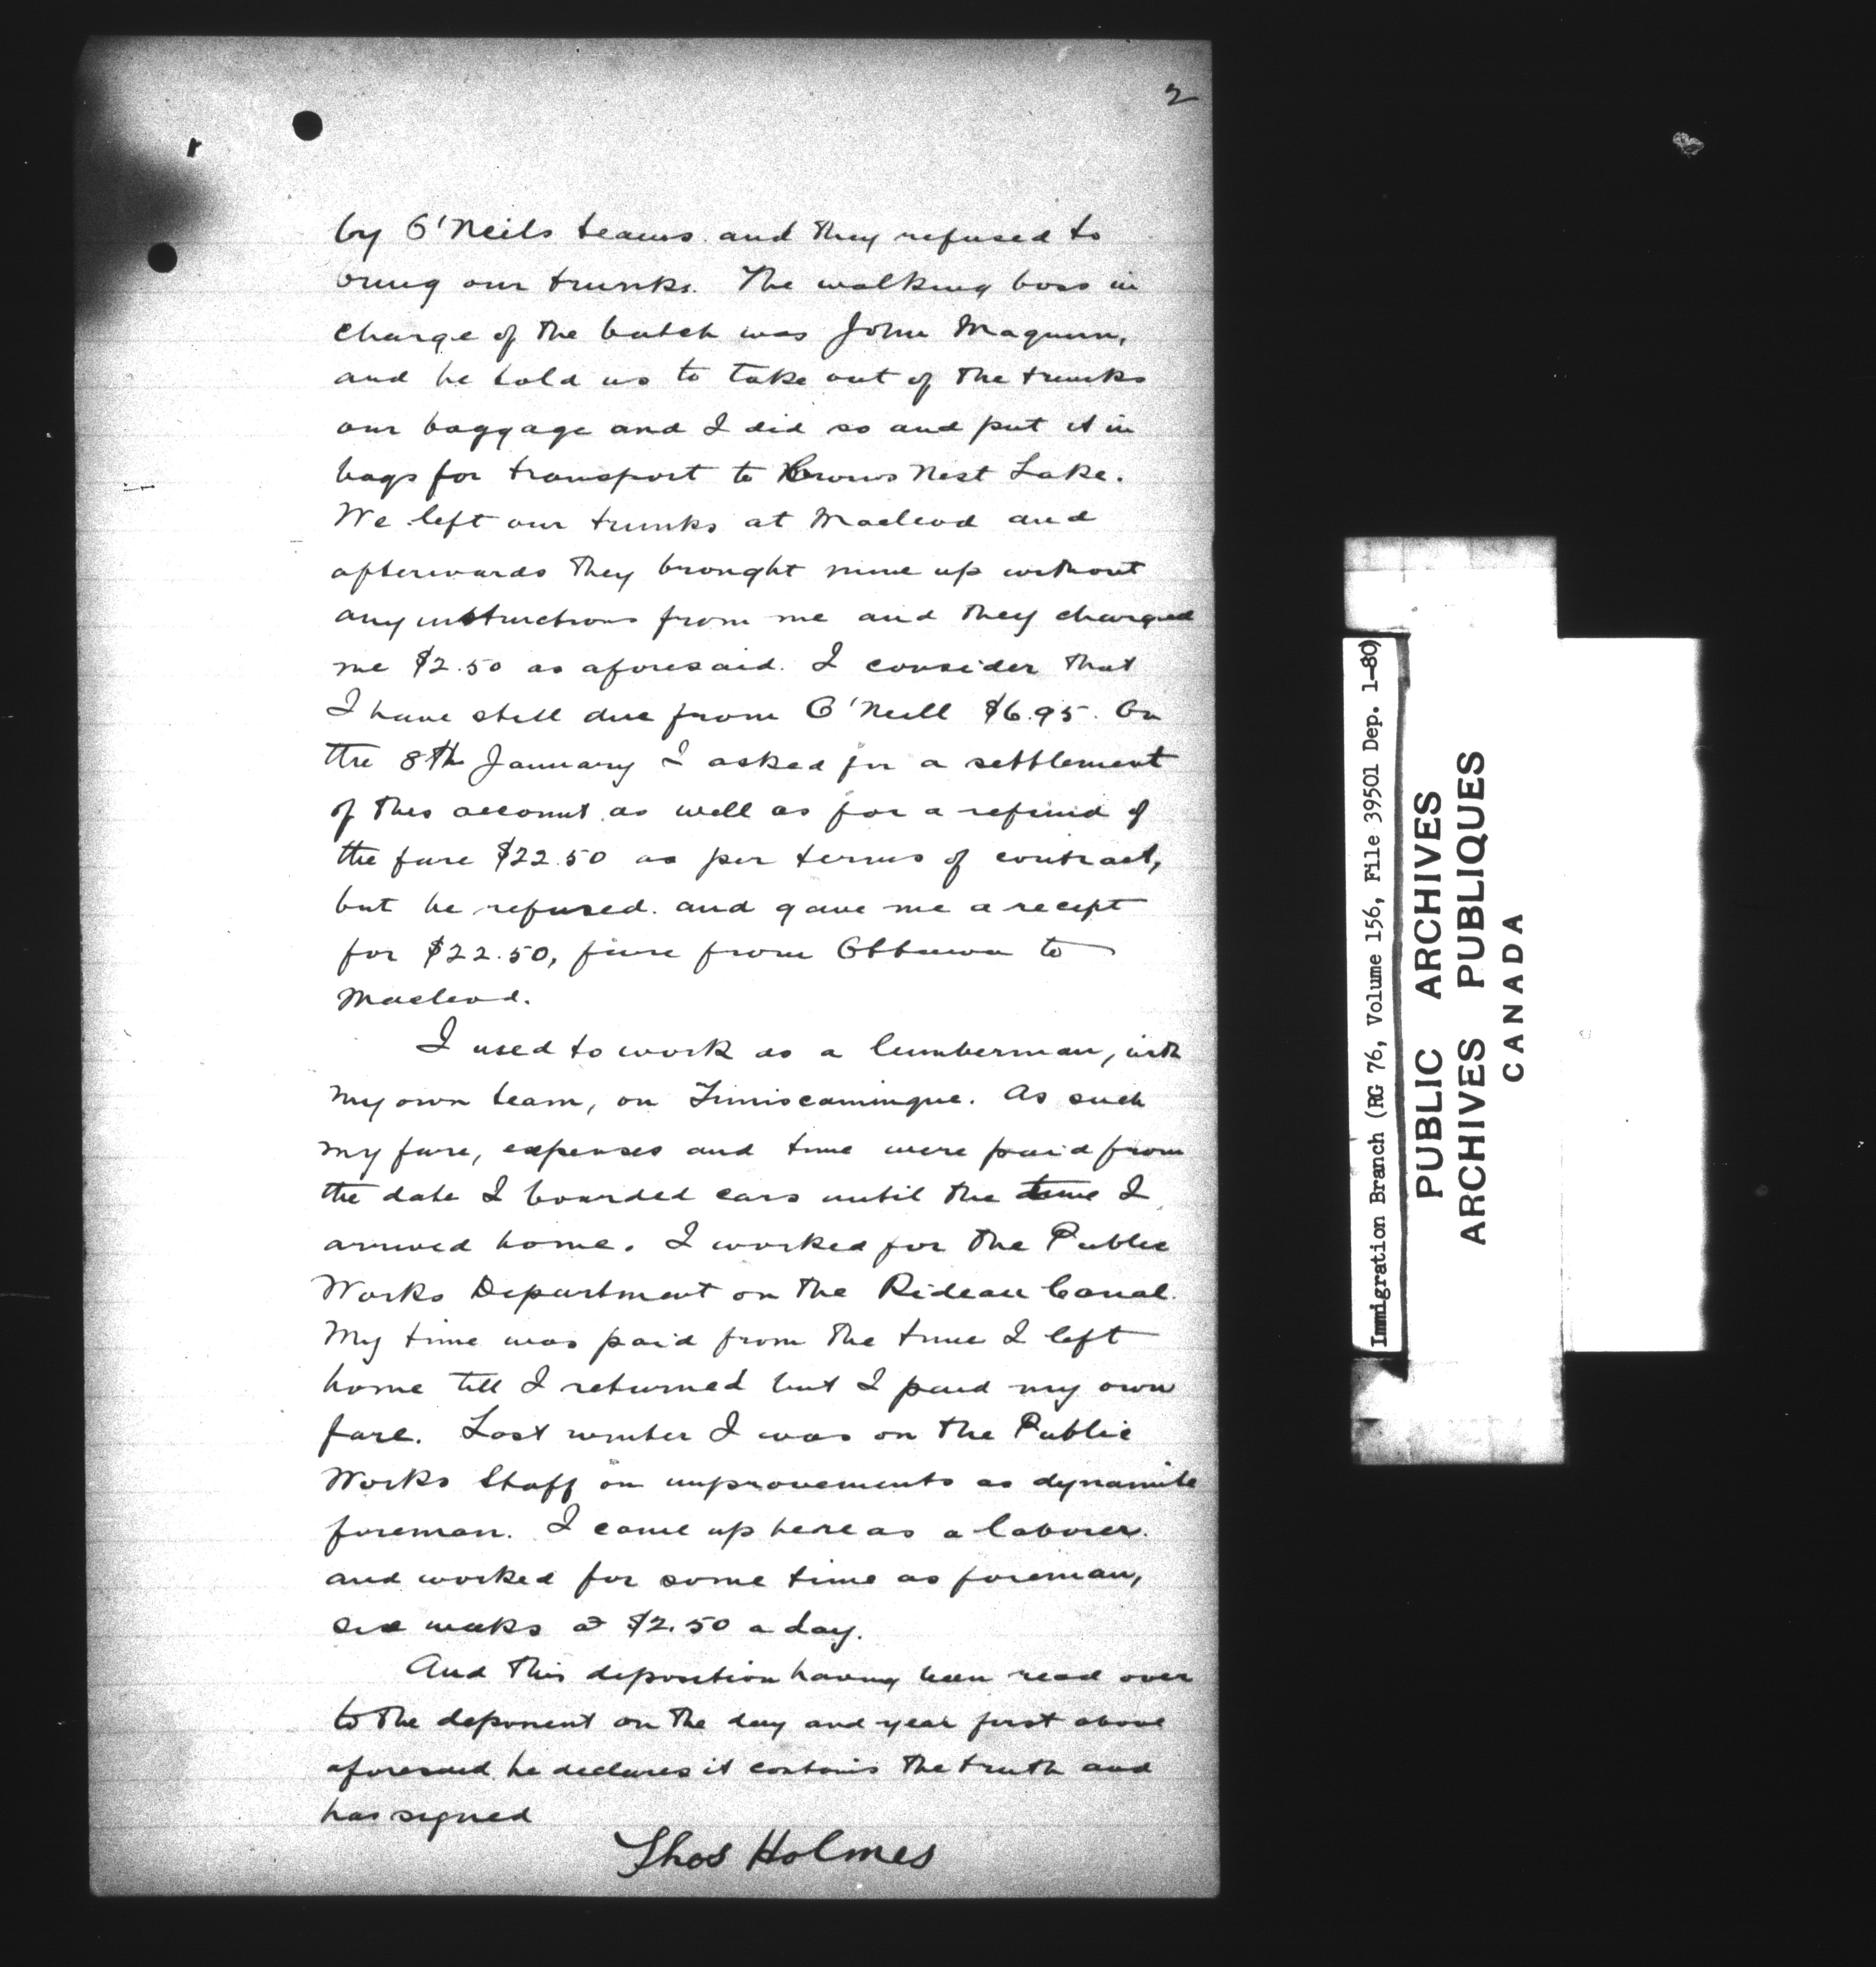 2
by O'Neils teams and they refused to
bring our trunks. The walking boss in
charge of the batch was John
and he told us to take out of the trunks
our baggage and I did so and put it in
bags for transport to Crows Nest Lake.
We left our trunks at Macleod and
afterwards they brought mine up without
any instructions from me and they charged
me $2.50 as aforesaid. I consider that
I have still due from O'Neill $6.95. On
the 8th January I asked for a settlement
of this account as well as for a refund of
the fare $22.50 as per terms of contract,
but he refused. and gave me a receipt
for $22.50, fare from Ottawa to
Macleod.
I used to work as a lumberman, with
my own team, on Timiscamingue. As such
my fare, expenses and time were paid from
the date I boarded cars until the time I
arrived home. I worked for the Public
Works Department on the Rideau Canal.
My time was paid from the time I left
home till I returned but I paid my own
fare. Last winter I was on the Public
Works Staff on improvements as dynamite
foreman. I came up here as a laborer.
and worked for some time as foreman,
six weeks at $2.50 a day.
And this deposition having been read over
to the deponent on the day and year first above
aforesaid he declares it contains the truth and
has signed
Thos Holmes
Immigration Branch (RG 76, Volume 156, File 39501 Dep. 1-80)
PUBLIC ARCHIVES
ARCHIVES PUBLIQUES
CANADA